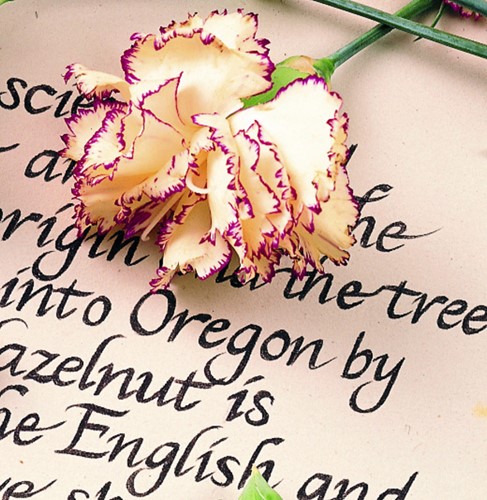 scie
an he
origin and the tree
into Oregon by
azelnut is
he English and
ve sh